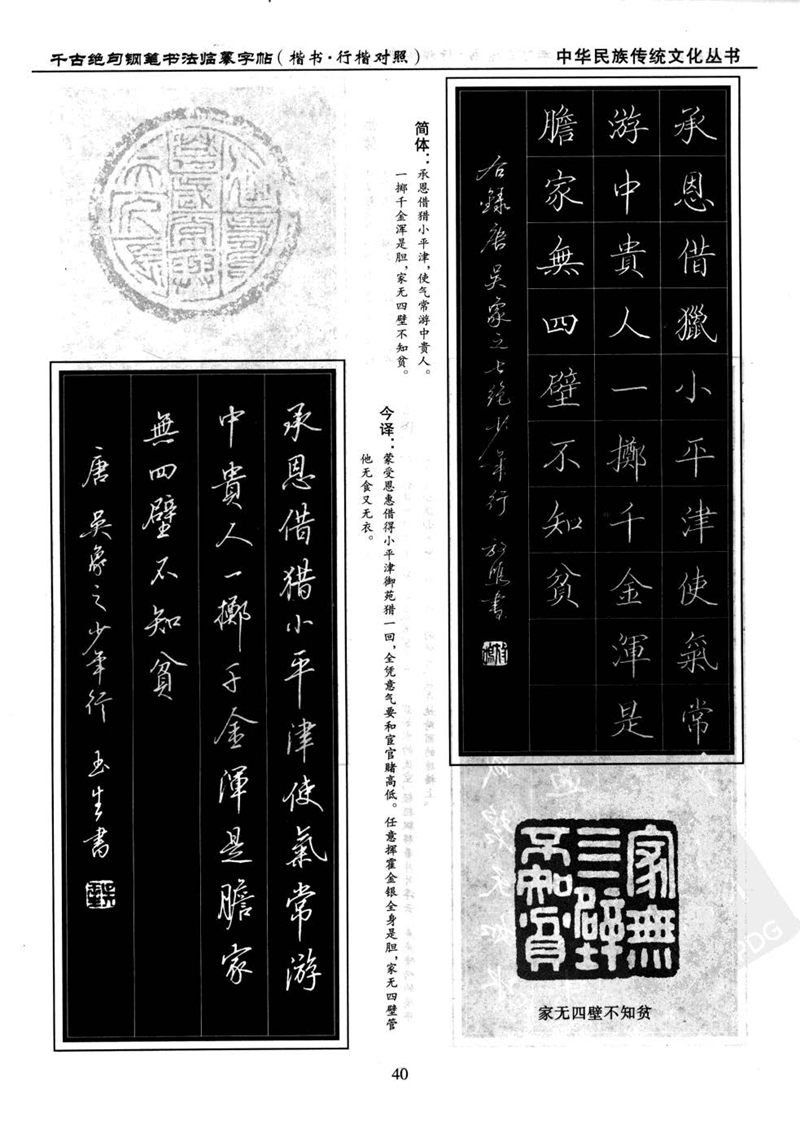 千古绝句钢笔书法临摹字帖（楷书·行楷对照）
中华民族传统文化丛书
承恩借獵小平津使氣常
游中貴人一擲千金渾是
膽家無四壁不知貧
右録唐吴象之七絶少年行
简体：承恩借猎小平津，使气常游中贵人。
一掷千金浑是胆，家无四壁不知贫。
今译：蒙受恩惠借得小平津御苑猎一回，全凭意气要和宦官赌高低。任意挥霍金银全身是胆，家无四壁管
他无食又无衣。
承恩借猎小平津使氣常游
中貴人一擲千金渾是膽家
無四壁不知貧
唐 吴象之少年行 玉生書
家無
三壁
不知貧
家无四壁不知贫
40